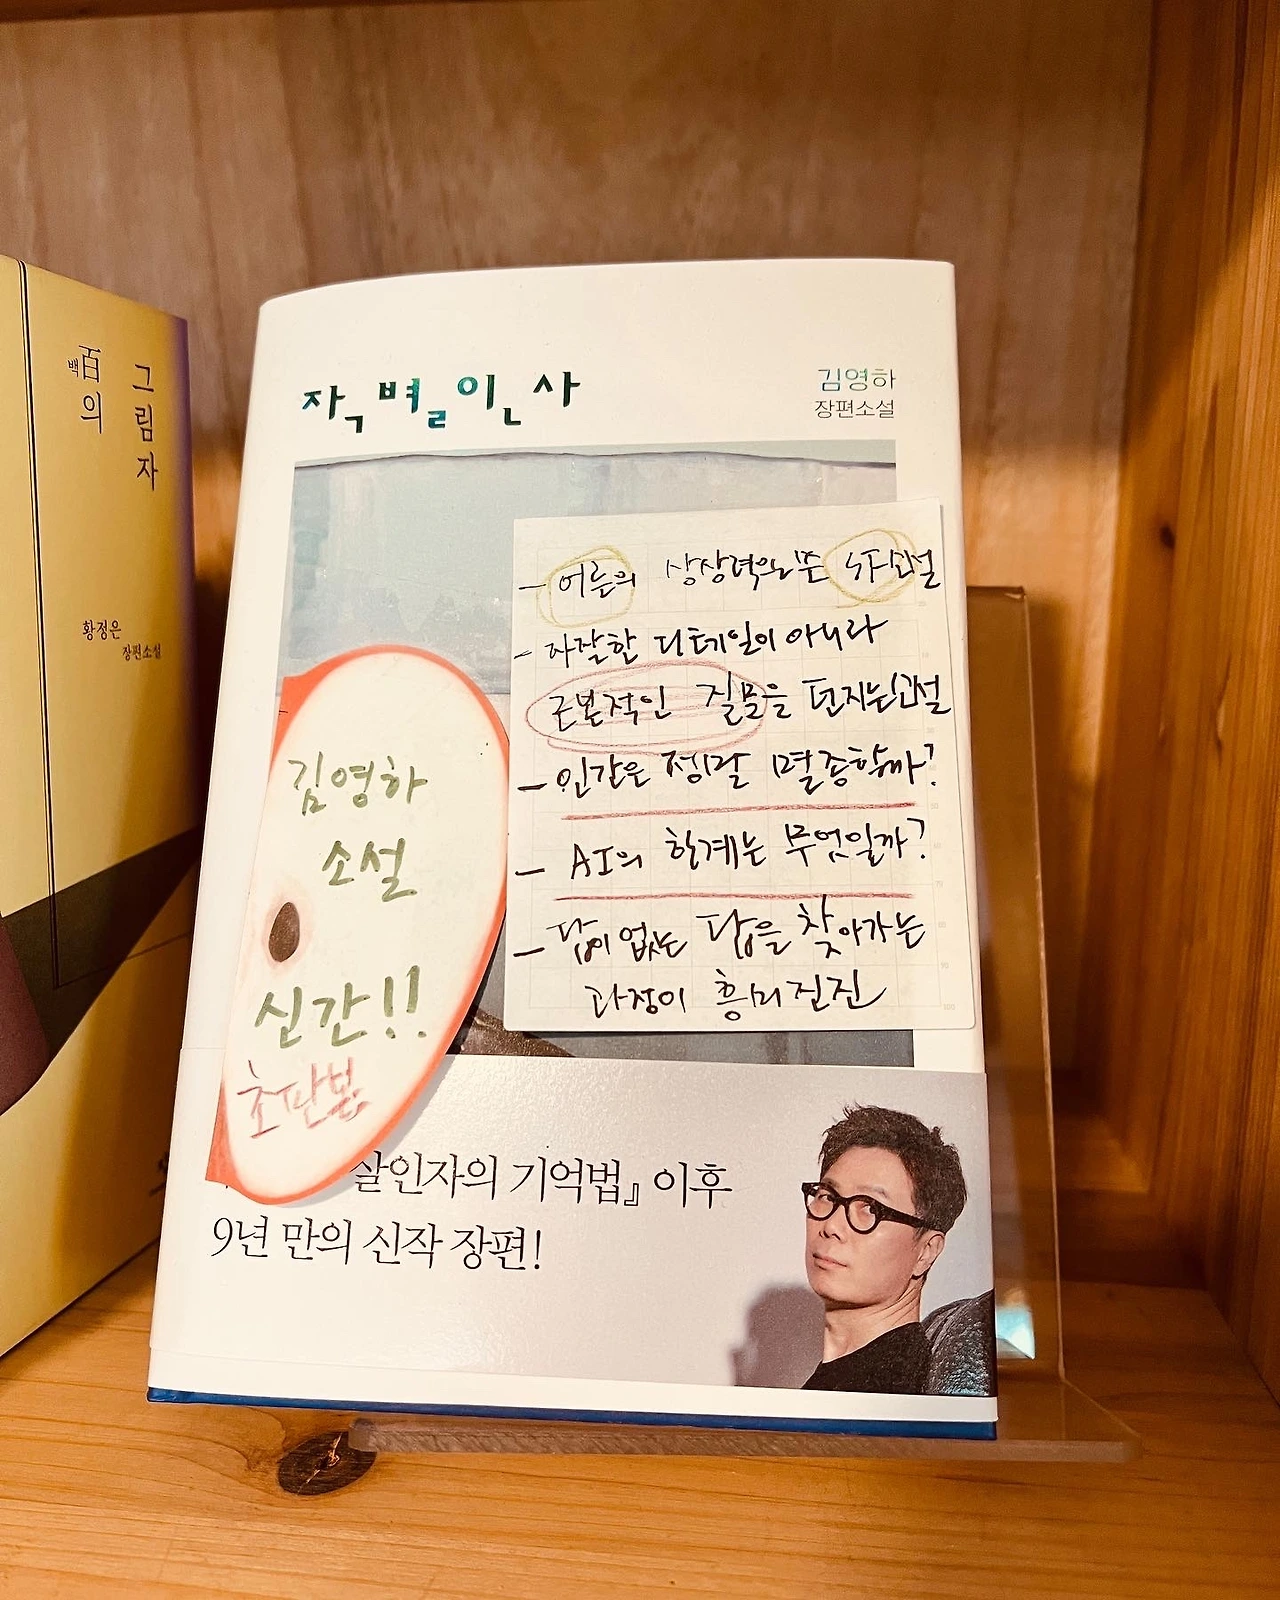 百백의
그림자
황정은
장편소설
작별인사
김영하
장편소설
- 어른의 상상력을 갖춘 SF소설
- 자잘한 디테일이 아니라
근본적인 질문을 던지는 소설
- 인간은 정말 멸종할까?
- AI의 한계는 무엇일까?
- 답이 없는 답을 찾아가는
과정이 흥미진진
김영하
소설
신간!!
초판본
살인자의 기억법』 이후
9년 만의 신작 장편!